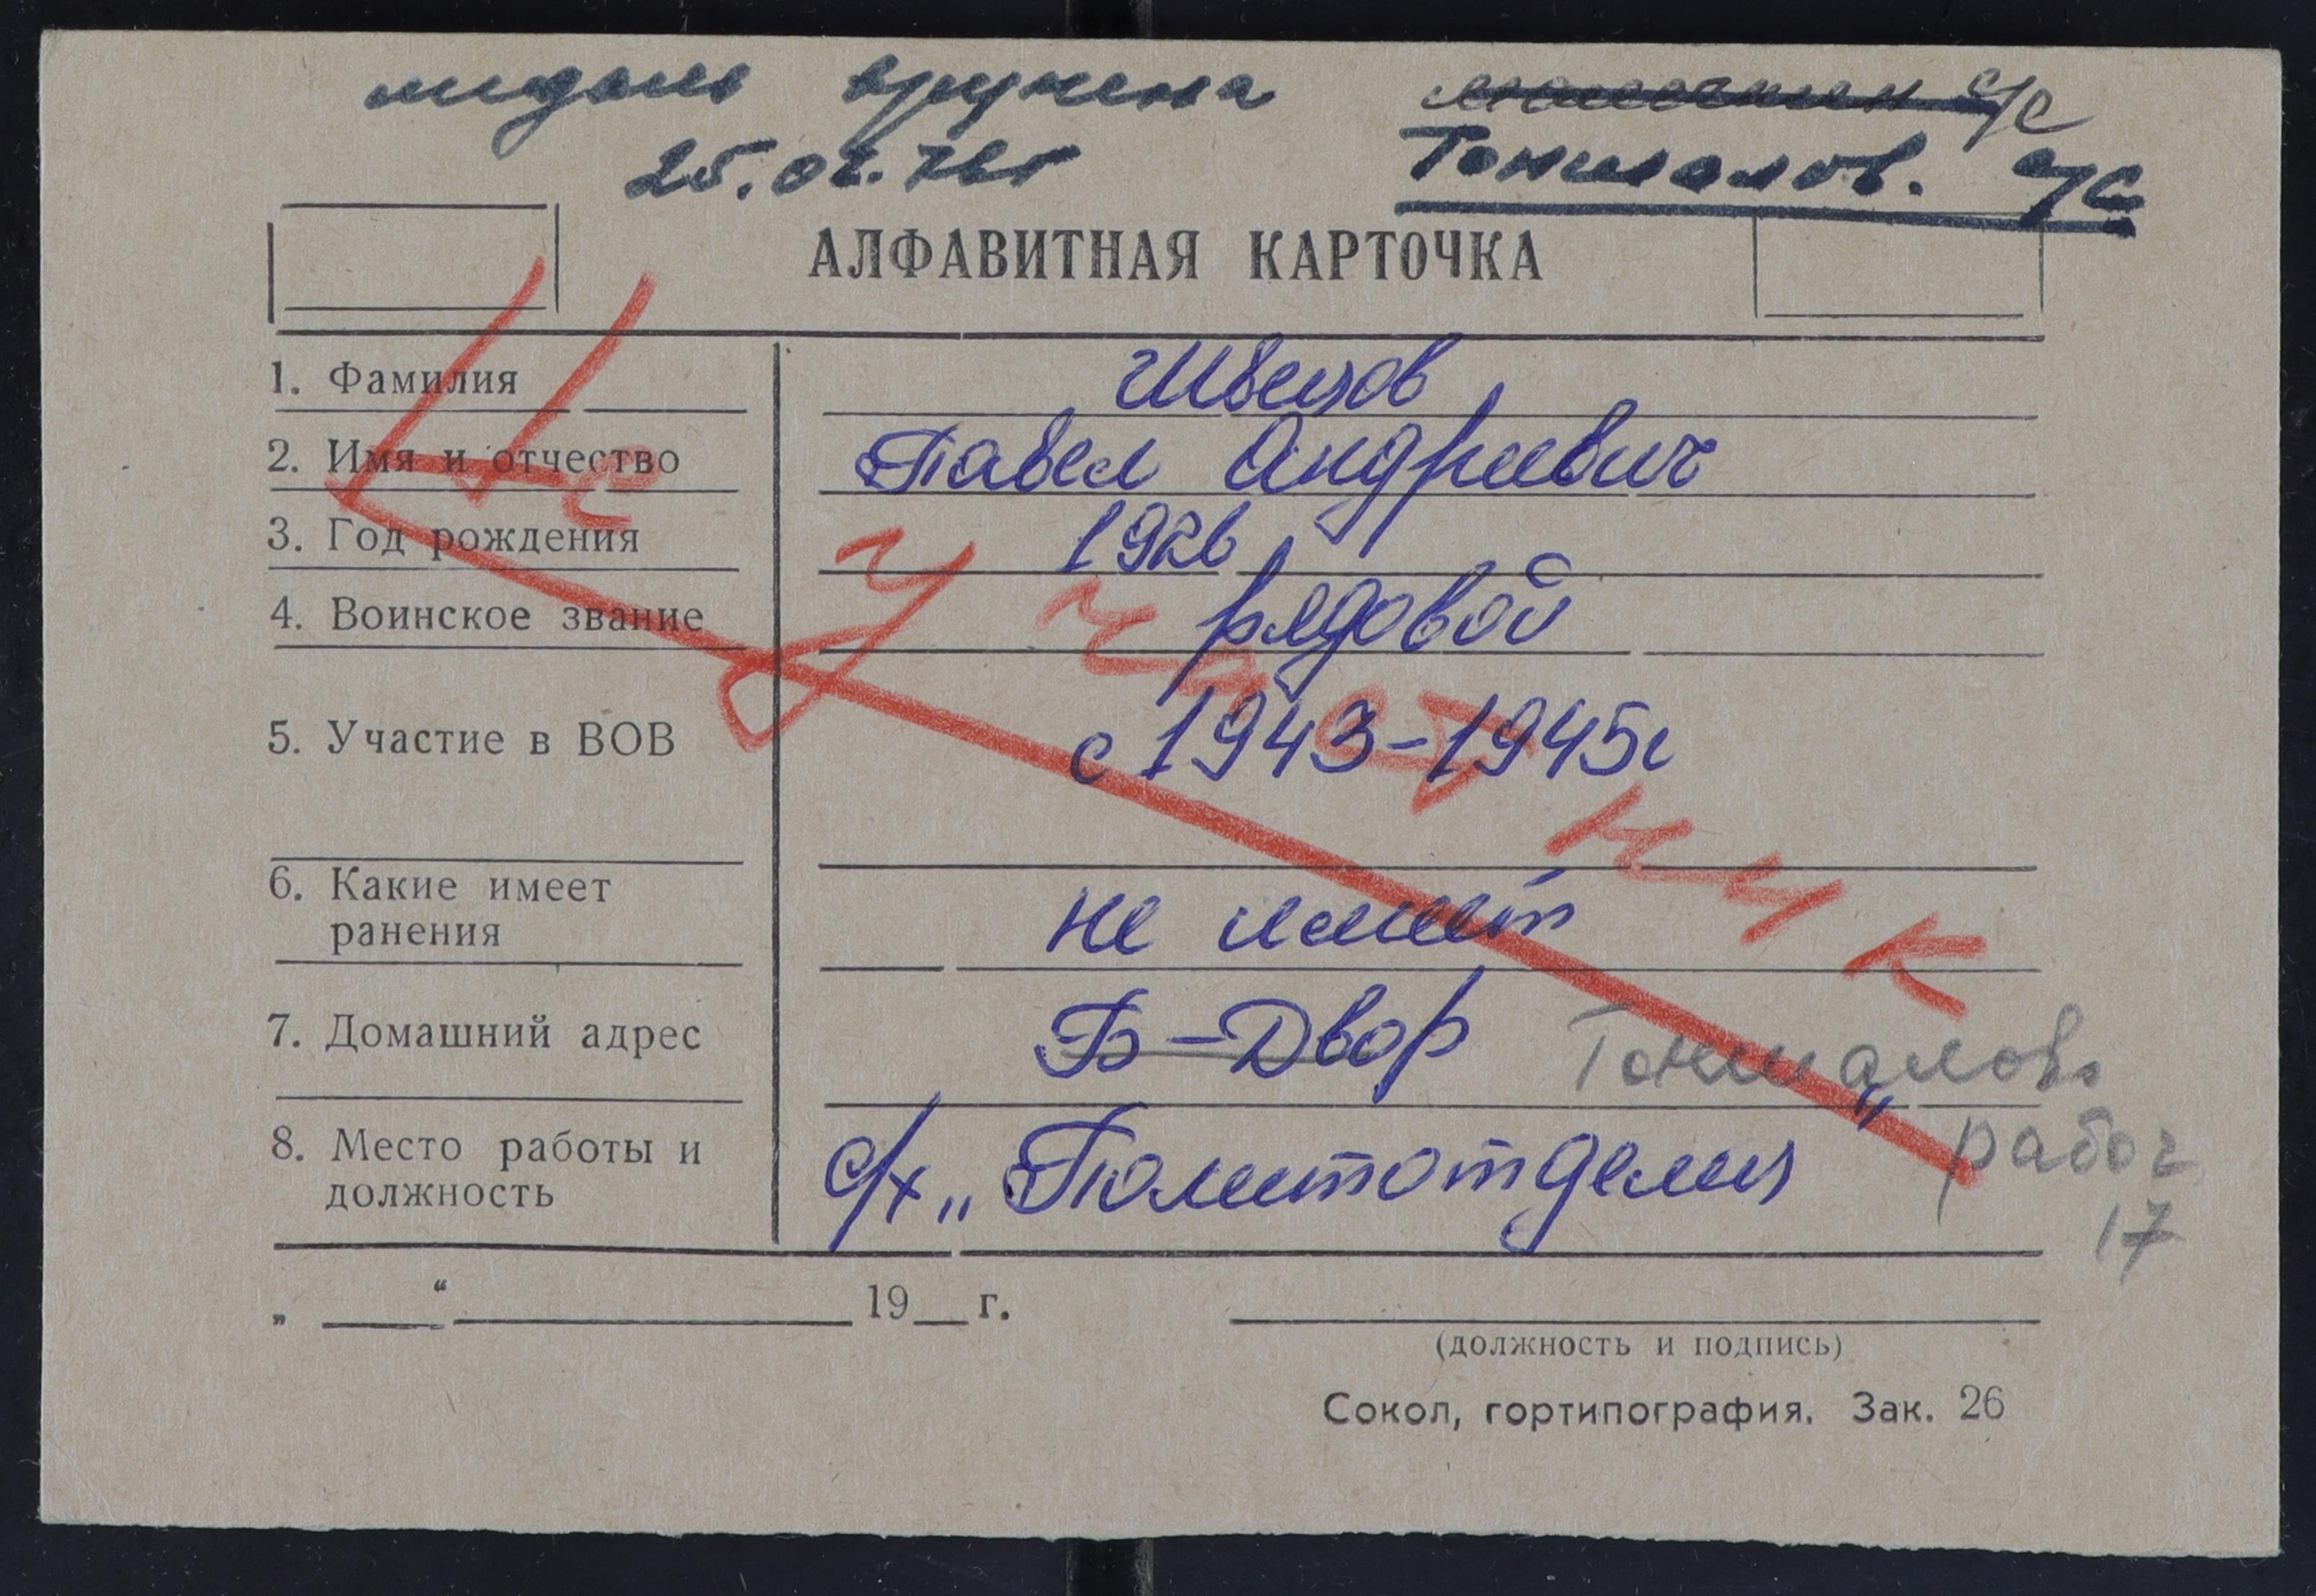 медаль вручена с/с
25.02.76г Тоншалов. с/с
АЛФАВИТНАЯ КАРТОЧКА
1. Фамилия Швецов
2. Имя и отчество Павел Андреевич
3. Год рождения 1926
4. Воинское звание рядовой
5. Участие в ВОВ с 1943-1945г
6. Какие имеет
ранения не имеет
7. Домашний адрес Б-Двор Тоншалово
8. Место работы и
должность с/х „Политотделец" рабоч
17
Не участник
„ ____ “ ________ 19__ г.
(должность и подпись)
Сокол, гортипография. Зак. 26